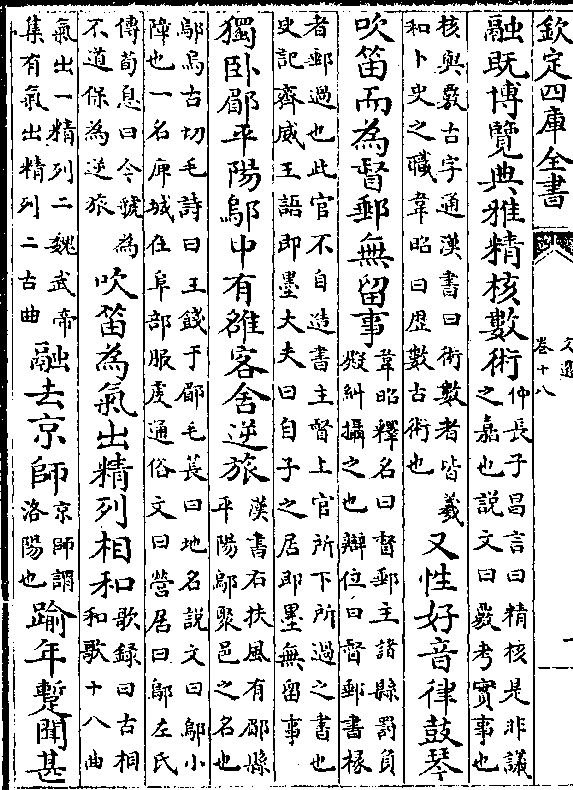 欽定四庫全書
文選
卷十八
一
融既博覽典雅精核數術
仲長子昌言曰精核是非議
之嘉也説文曰覈考實事也
核與覈古字通漢書曰術數者皆羲
和卜史之職韋昭曰厯數古術也
又性好音律鼓琴
吹笛而為督郵無留事
韋昭釋名曰督郵主諸縣罰負
殿糾攝之也辯位曰督郵書掾
者郵過也此官不自造書主督上官所下所過之書也
史記齊威王語即墨大夫曰自子之居即墨無留事
獨卧郿平陽鄔中有雒客舍逆旅
漢書右扶風有郿縣
平陽鄔聚邑之名也
鄔烏古切毛詩曰王餞于郿毛萇曰地名説文曰鄔小
障也一名庳城在阜部服虔通俗文曰營居曰鄔左氏
傳荀息曰今虢為
不道保為逆旅
吹笛為氣出精列相和
歌錄曰古相
和歌十八曲
氣出一精列二魏武帝
集有氣出精列二古曲
融去京師
京師謂
洛陽也
踰年蹔聞甚